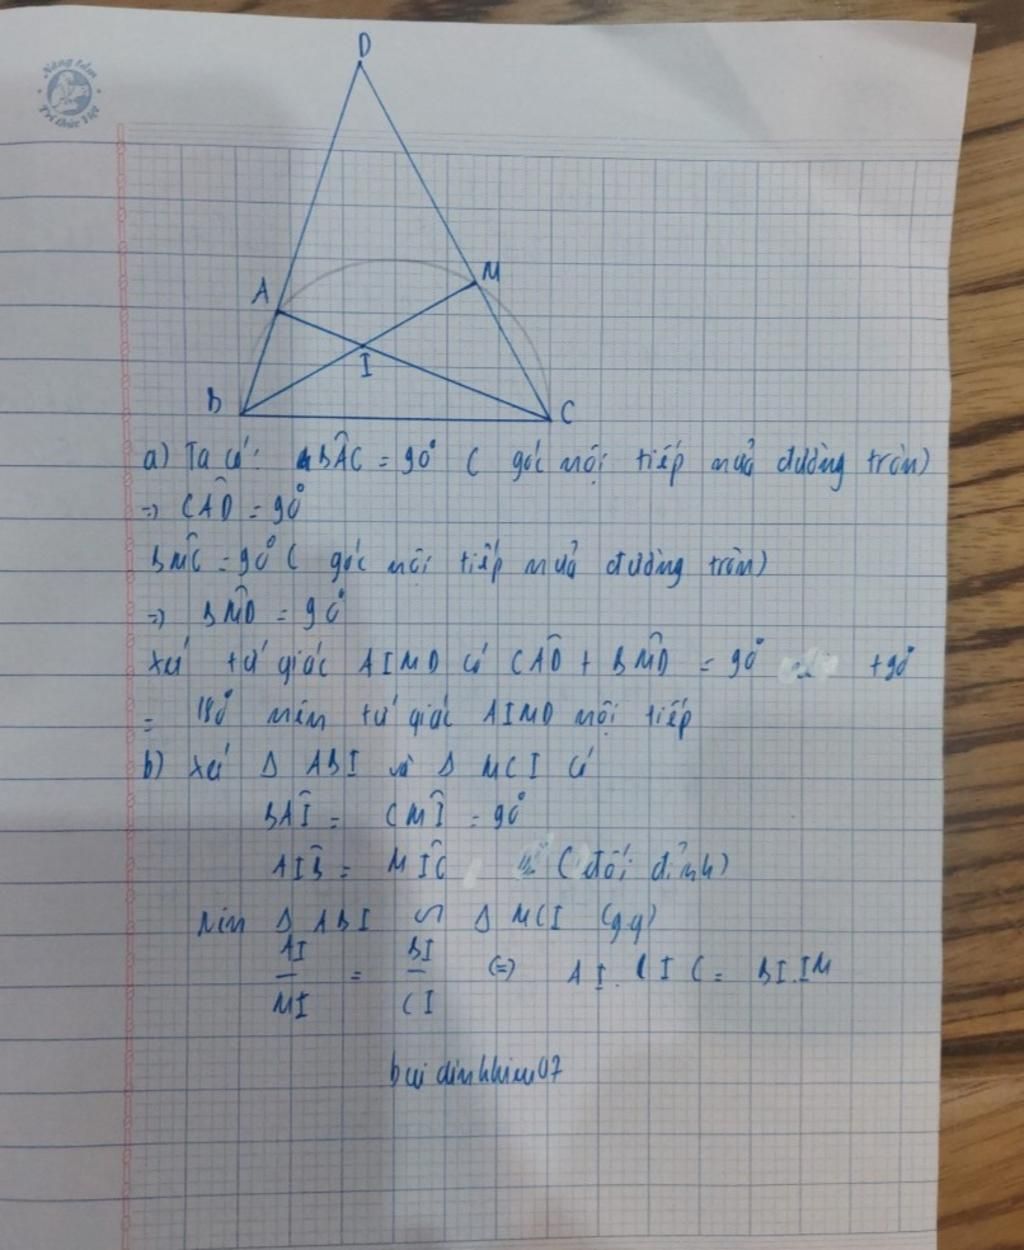 Nâng tầm
Trí thức Việt
D
A
M
I
B
C
a) Ta có: BÂC = 90° ( góc nội tiếp nửa đường tròn)
=> CÂD = 90°
BM̂C = 90° ( góc nội tiếp nửa đường tròn)
=> BM̂D = 90°
Xét tứ giác AIMD có CÂD + BM̂D = 90° +90°
= 180° nên tứ giác AIMD nội tiếp
b) Xét Δ ABI và Δ MCI có
BÂI = CM̂I = 90°
AÎB = MÎC (đối đỉnh)
Nên Δ ABI ∽ Δ MCI (g.g)
AI/MI = BI/CI (=) AI. IC = BI.IM